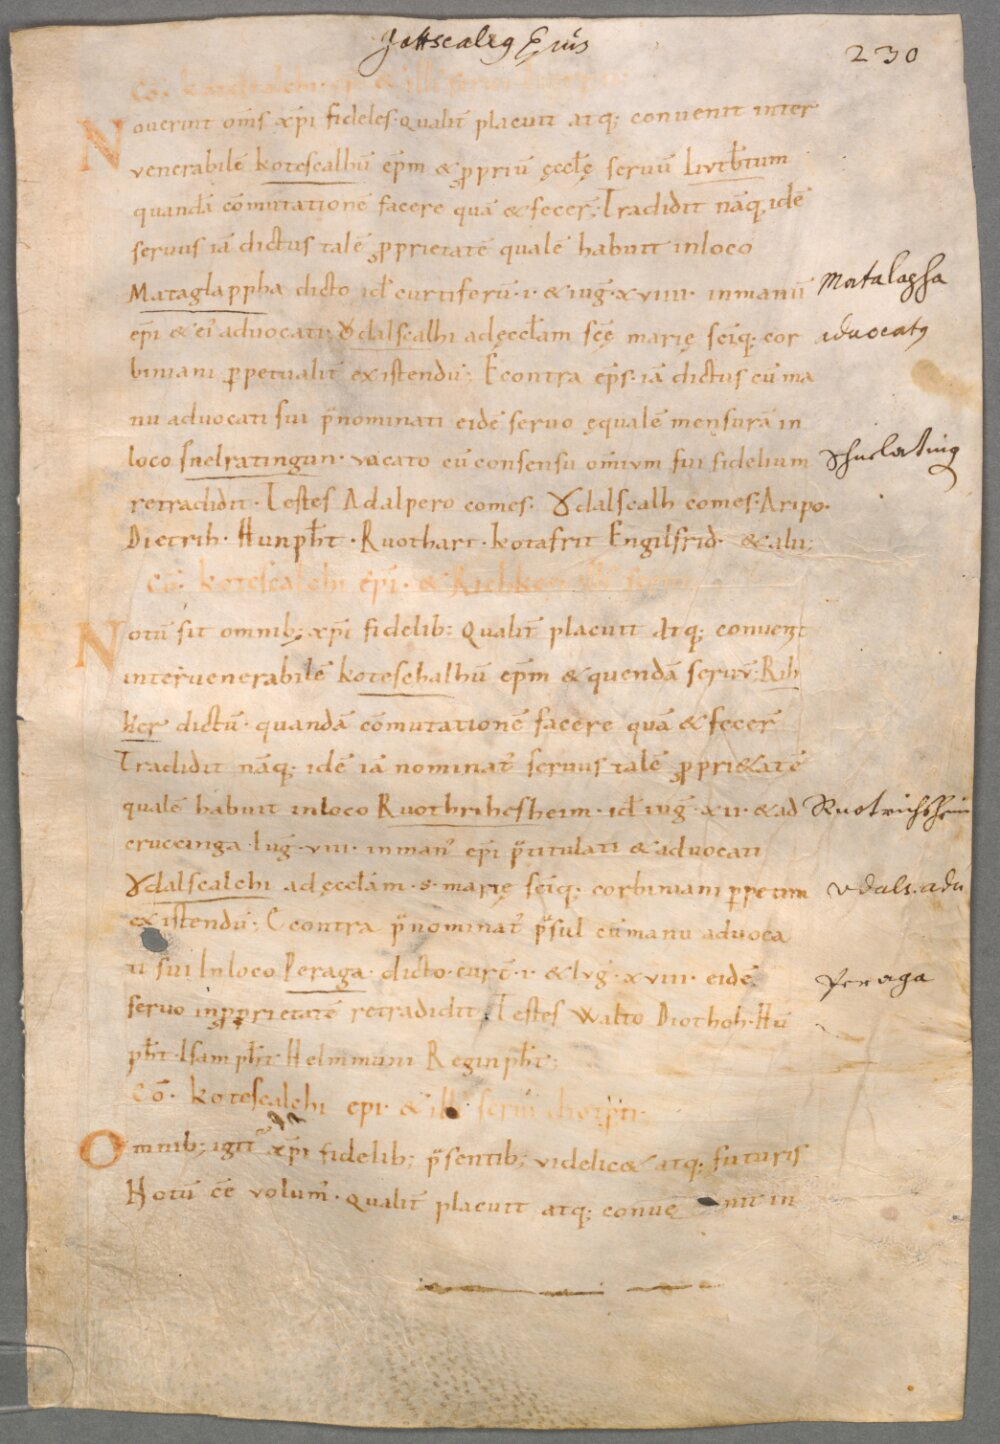 Gottscalcg Epus
230
Cō · kotescalchi · epi · & illi servi
Noverint om̄s xp̄i fideles · qualit̄ placuit atq; convenit inter
venerabilē kotescalhū ep̄m & ꝓpriū ęccłę servū Livtb̄tum
quandā cōmutationē facere quā & fecer̄ · Tradidit nāq; idē
servus iā dictus talē ꝓprietatē qualē habuit inloco
Mataglappha dicto id̄ curtiferū · i · & iuḡ · xviiii · inmanū
Matalapha
ep̄i & ei' advocati · Ȣdalscalhi adęccłam scę̄ marię sc̄iq; cor
advocatꝰ
biniani ꝑpetualit̄ existendū; Econtra ep̄s · iā dictus cū ma
nu advocati sui p̄nominati eidē servo ęqualē mensurā in
loco snelratingun · vocato cū consensu omīvm sui fidelium
Shnelrating
retradidit · Testes Adalpero comes · Ȣdalscalh comes · Aripo ·
Dietrih · Hunpħt · Ruothart · kotafrit Engilfrid · & alii;
Cō · kotescalchi ep̄i · & Richker
Notū sit omnib; xp̄i fidelib: Qualit̄ placuit Atq; convenit
intervenerabilē koteschalhū ep̄m & quendā servū · Rih
ker dictū · quandā cōmutationē facere quā & fecer̄
Tradidit nāq; idē iā nominat' servus talē ꝓpri&atē
qualē habuit inloco Ruothrihesheim · id̄ iuḡ · xii · & ad
Ruotrichsheim
cruccinga · Iuḡ · viii · inman' ep̄i p̄titulati & advocati
Ȣdalscalchi adęccłam · s · marię sc̄iq; corbiniani ꝑpetim
vdals · adu
existendū; Econtra p̄nominat' p̄sul cūmanu advoca
ti sui Inloco Peraga dicto · curt̄ · i · & Ivḡ · xviii · eidē
Peraga
servo inꝓprietatē retradidit Testes Walto Diothoh · Hū
pħt · Isampħt · Helmmuni Reginpħt;
Cō · kotescalchi epi · & illi' servi diotp̄ti ·
Omnib; igit̄ xp̄i fidelib; p̄sentib; videlic& atq; futuris
Notū eē volum' · Qualit̄ placuit atq; convę nit in